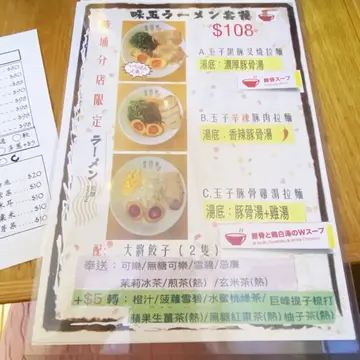 味玉ラーメン套餐
$108
黃埔分店限定
ラーメン
A.玉子黑豚叉燒拉麵
湯底：濃厚豚骨湯
豚骨スープ
B.玉子辛辣豚肉拉麵
湯底：香辣豚骨湯
C.玉子豚骨雞湯拉麵
湯底：豚骨湯+雞湯
豚骨と鶏白湯のWスープ
配：大將餃子（2隻）
奉送：可樂/無糖可樂/雪碧/忌廉
茉莉冰茶/煎茶(熱)/玄米茶(熱)
+$5 轉：橙汁/菠蘿雪碧/水蜜桃綠茶/巨峰提子梳打
蘋果生薑茶(熱)/無糖紅棗茶(熱)柚子茶(熱)
$20
$10
$10
$10